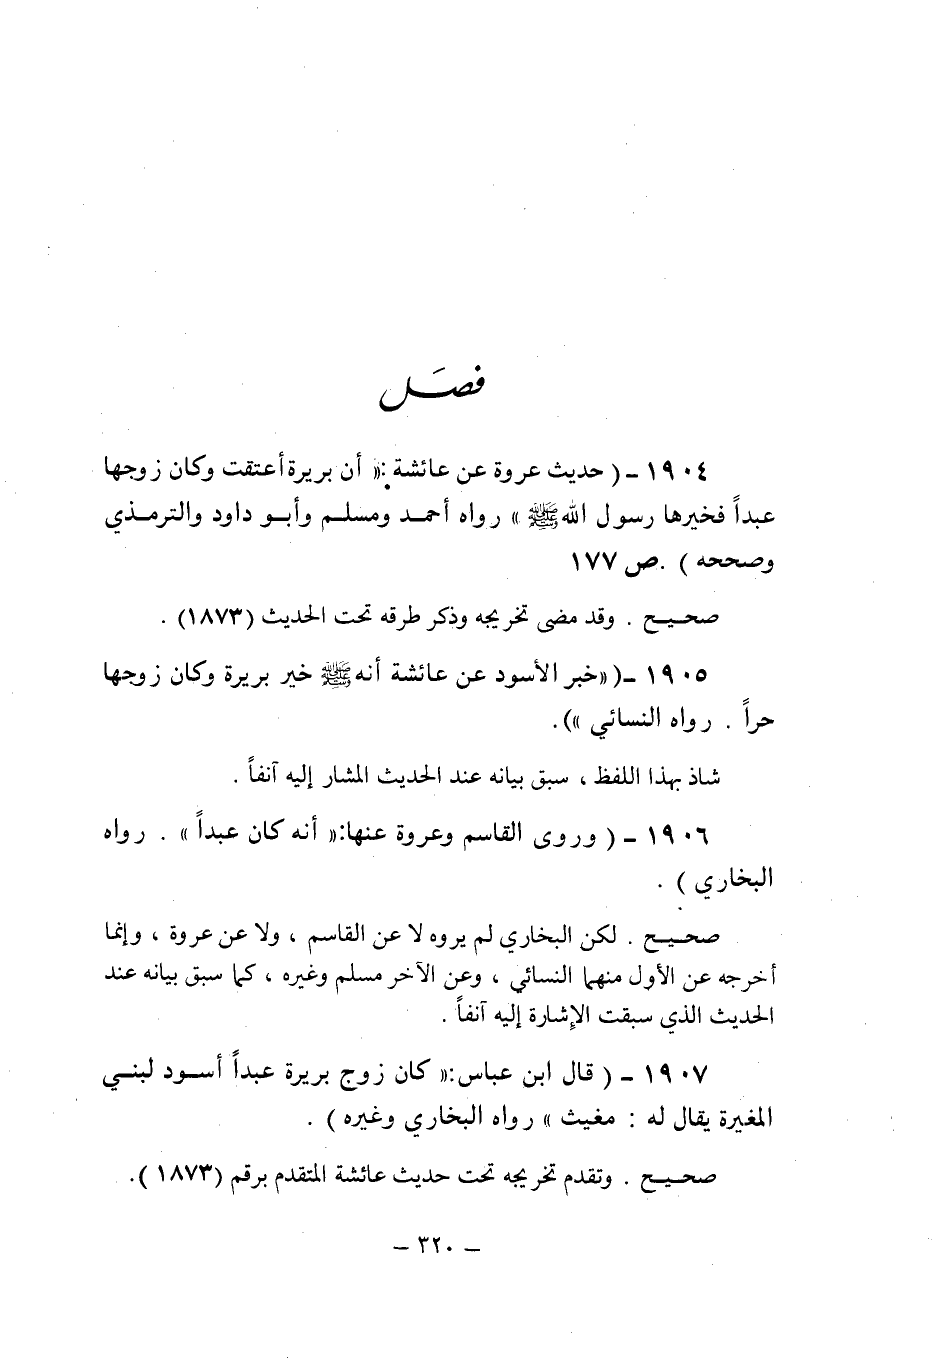 فصَل
١٩٠٤ - ( حديث عروة عن عائشة : « أن بريرة أعتقت وكان زوجها
عبداً فخيرها رسول الله ﷺ » رواه أحمد ومسلم وأبو داود والترمذي
وصححه ) . ص ١٧٧
صحيح . وقد مضى تخريجه وذكر طرقه تحت الحديث (١٨٧٣) .
١٩٠٥ - ( « خبر الأسود عن عائشة أنه ﷺ خير بريرة وكان زوجها
حراً . رواه النسائي » ) .
شاذ بهذا اللفظ ، سبق بيانه عند الحديث المشار إليه آنفاً .
١٩٠٦ - ( وروى القاسم وعروة عنها: « أنه كان عبداً » . رواه
البخاري ) .
صحيح . لكن البخاري لم يروه لا عن القاسم ، ولا عن عروة ، وإنما
أخرجه عن الأول منهما النسائي ، وعن الآخر مسلم وغيره ، كما سبق بيانه عند
الحديث الذي سبقت الإشارة إليه آنفاً .
١٩٠٧ - ( قال ابن عباس: « كان زوج بريرة عبداً أسود لبني
المغيرة يقال له : مغيث » رواه البخاري وغيره ) .
صحيح . وتقدم تخريجه تحت حديث عائشة المتقدم برقم (١٨٧٣ ) .
- ٣٢٠ -